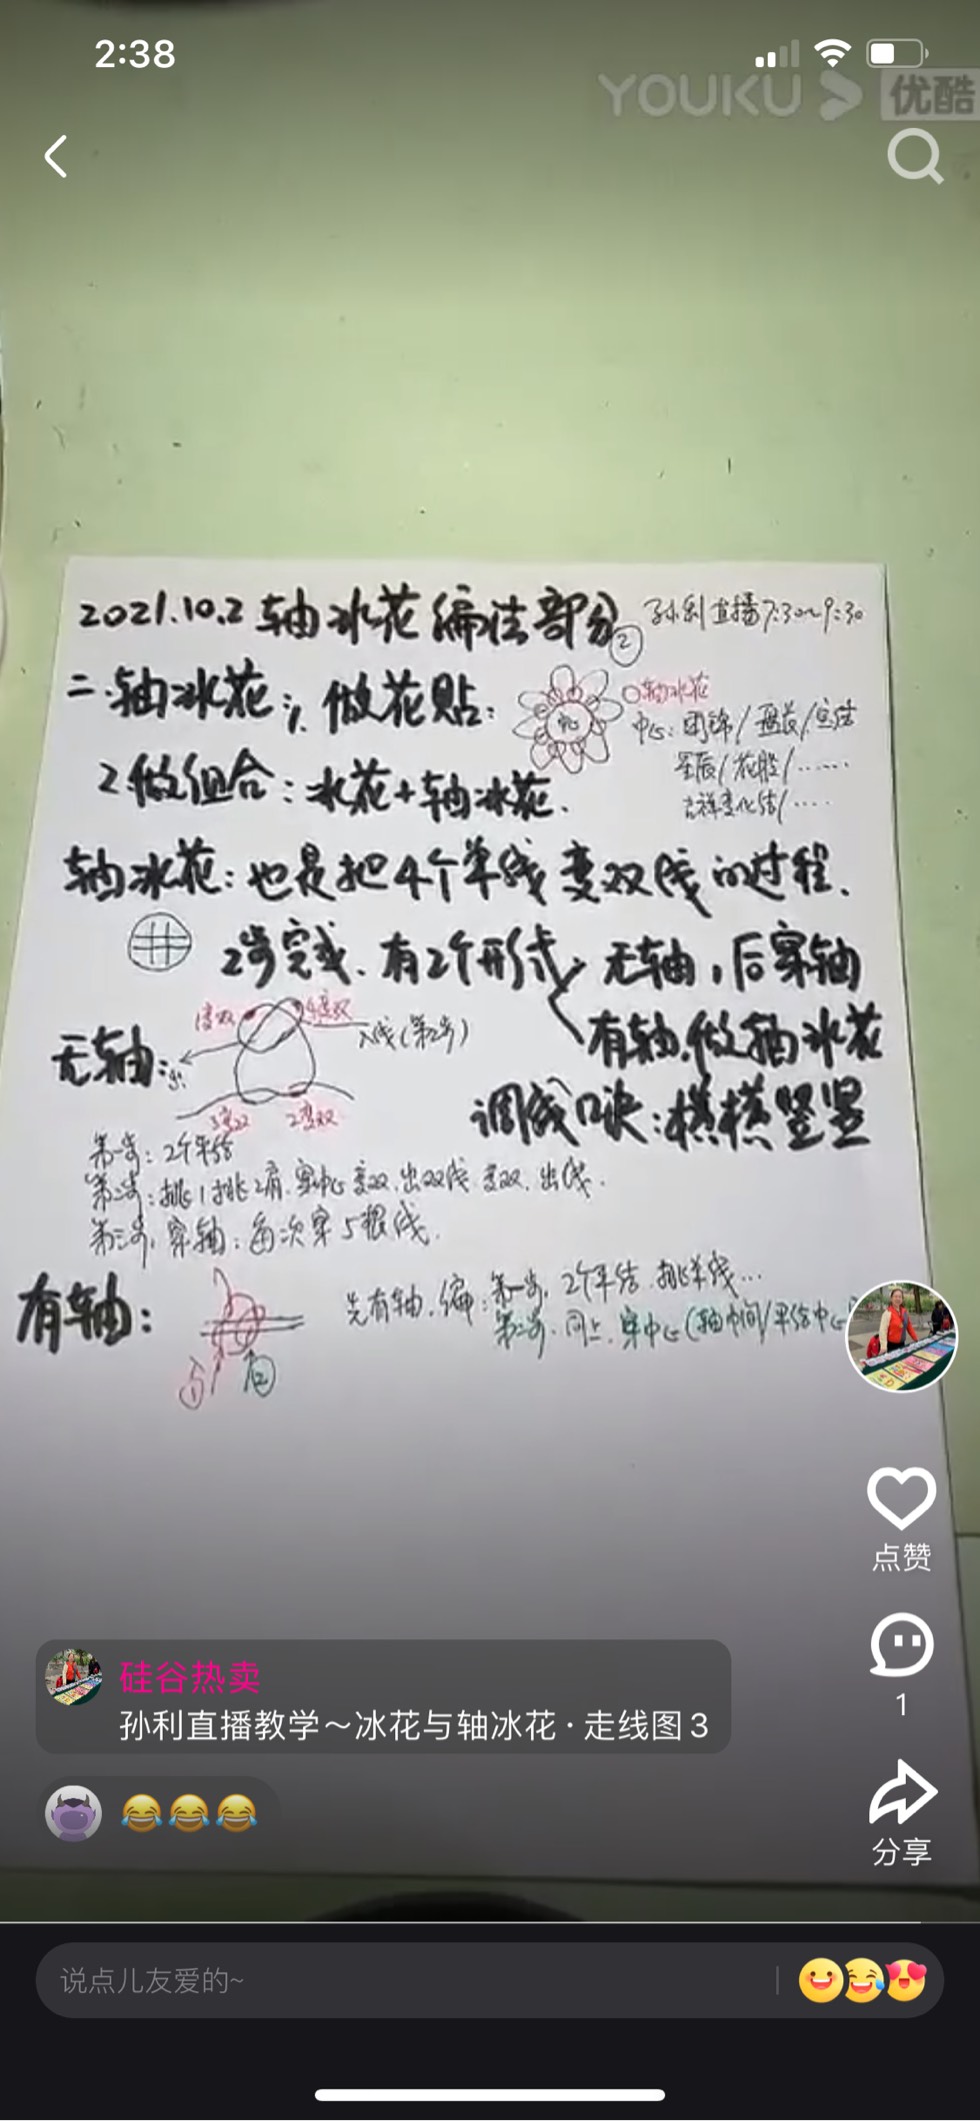 2:38
YOUKU 优酷
2021.10.2 轴冰花编法部分 ② 孙利直播7:30~9:30
二.轴冰花:1.做花贴:
轴冰花
中心:团锦/盘长/
星辰/花胶/……
吉祥变化结/……
2.做组合:冰花+轴冰花.
轴冰花:也是把4个单线变双线的过程.
2步完成.有2个形式 无轴,后穿轴
有轴.做轴冰花
无轴:
1变双
4变双
入线(第2步)
3变双
2变双
调线口诀:横横竖竖
第一步:2个平结
第二步:挑1挑2肩.穿中心变双.出双线变双.出线.
第三步.穿轴:每次穿5根线.
有轴:
先有轴.编:第一步.2个平结.挑单线…
第二步.同上.穿中心(轴中间/平结中心
① ②
点赞
1
分享
硅谷热卖
孙利直播教学～冰花与轴冰花·走线图3
说点儿友爱的~